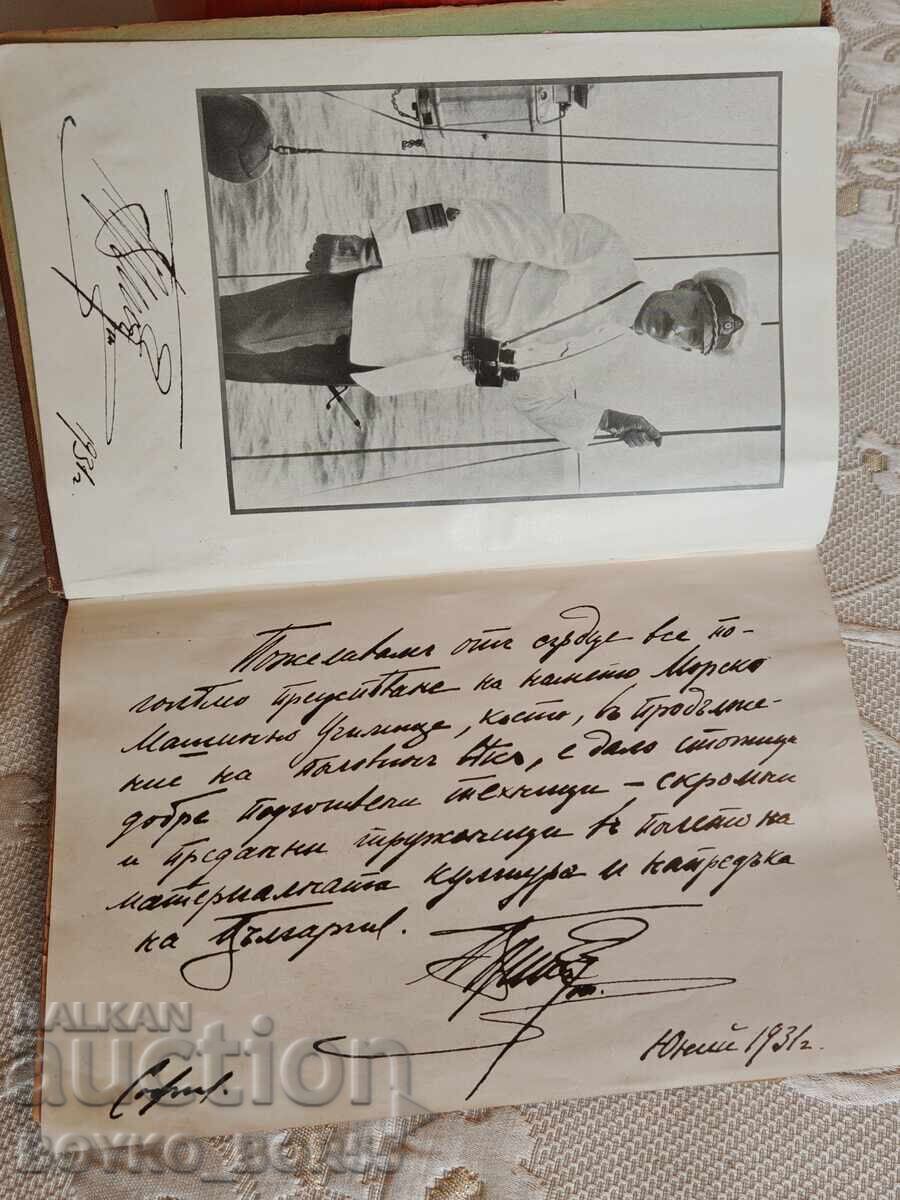 1931 г.
Пожелавамъ отъ сърдце все по-
голѣмо преуспѣване на нашето Морско
Машинно Училище, което, въ продълже-
ние на половинъ вѣкъ, е дало стотици
добре подготвени техници – скромни
и предани труженици въ полето на
материалната култура и напредъка
на България.
София.
Юний 1931 г.
BALKAN
auction
BOYKO_BOABS